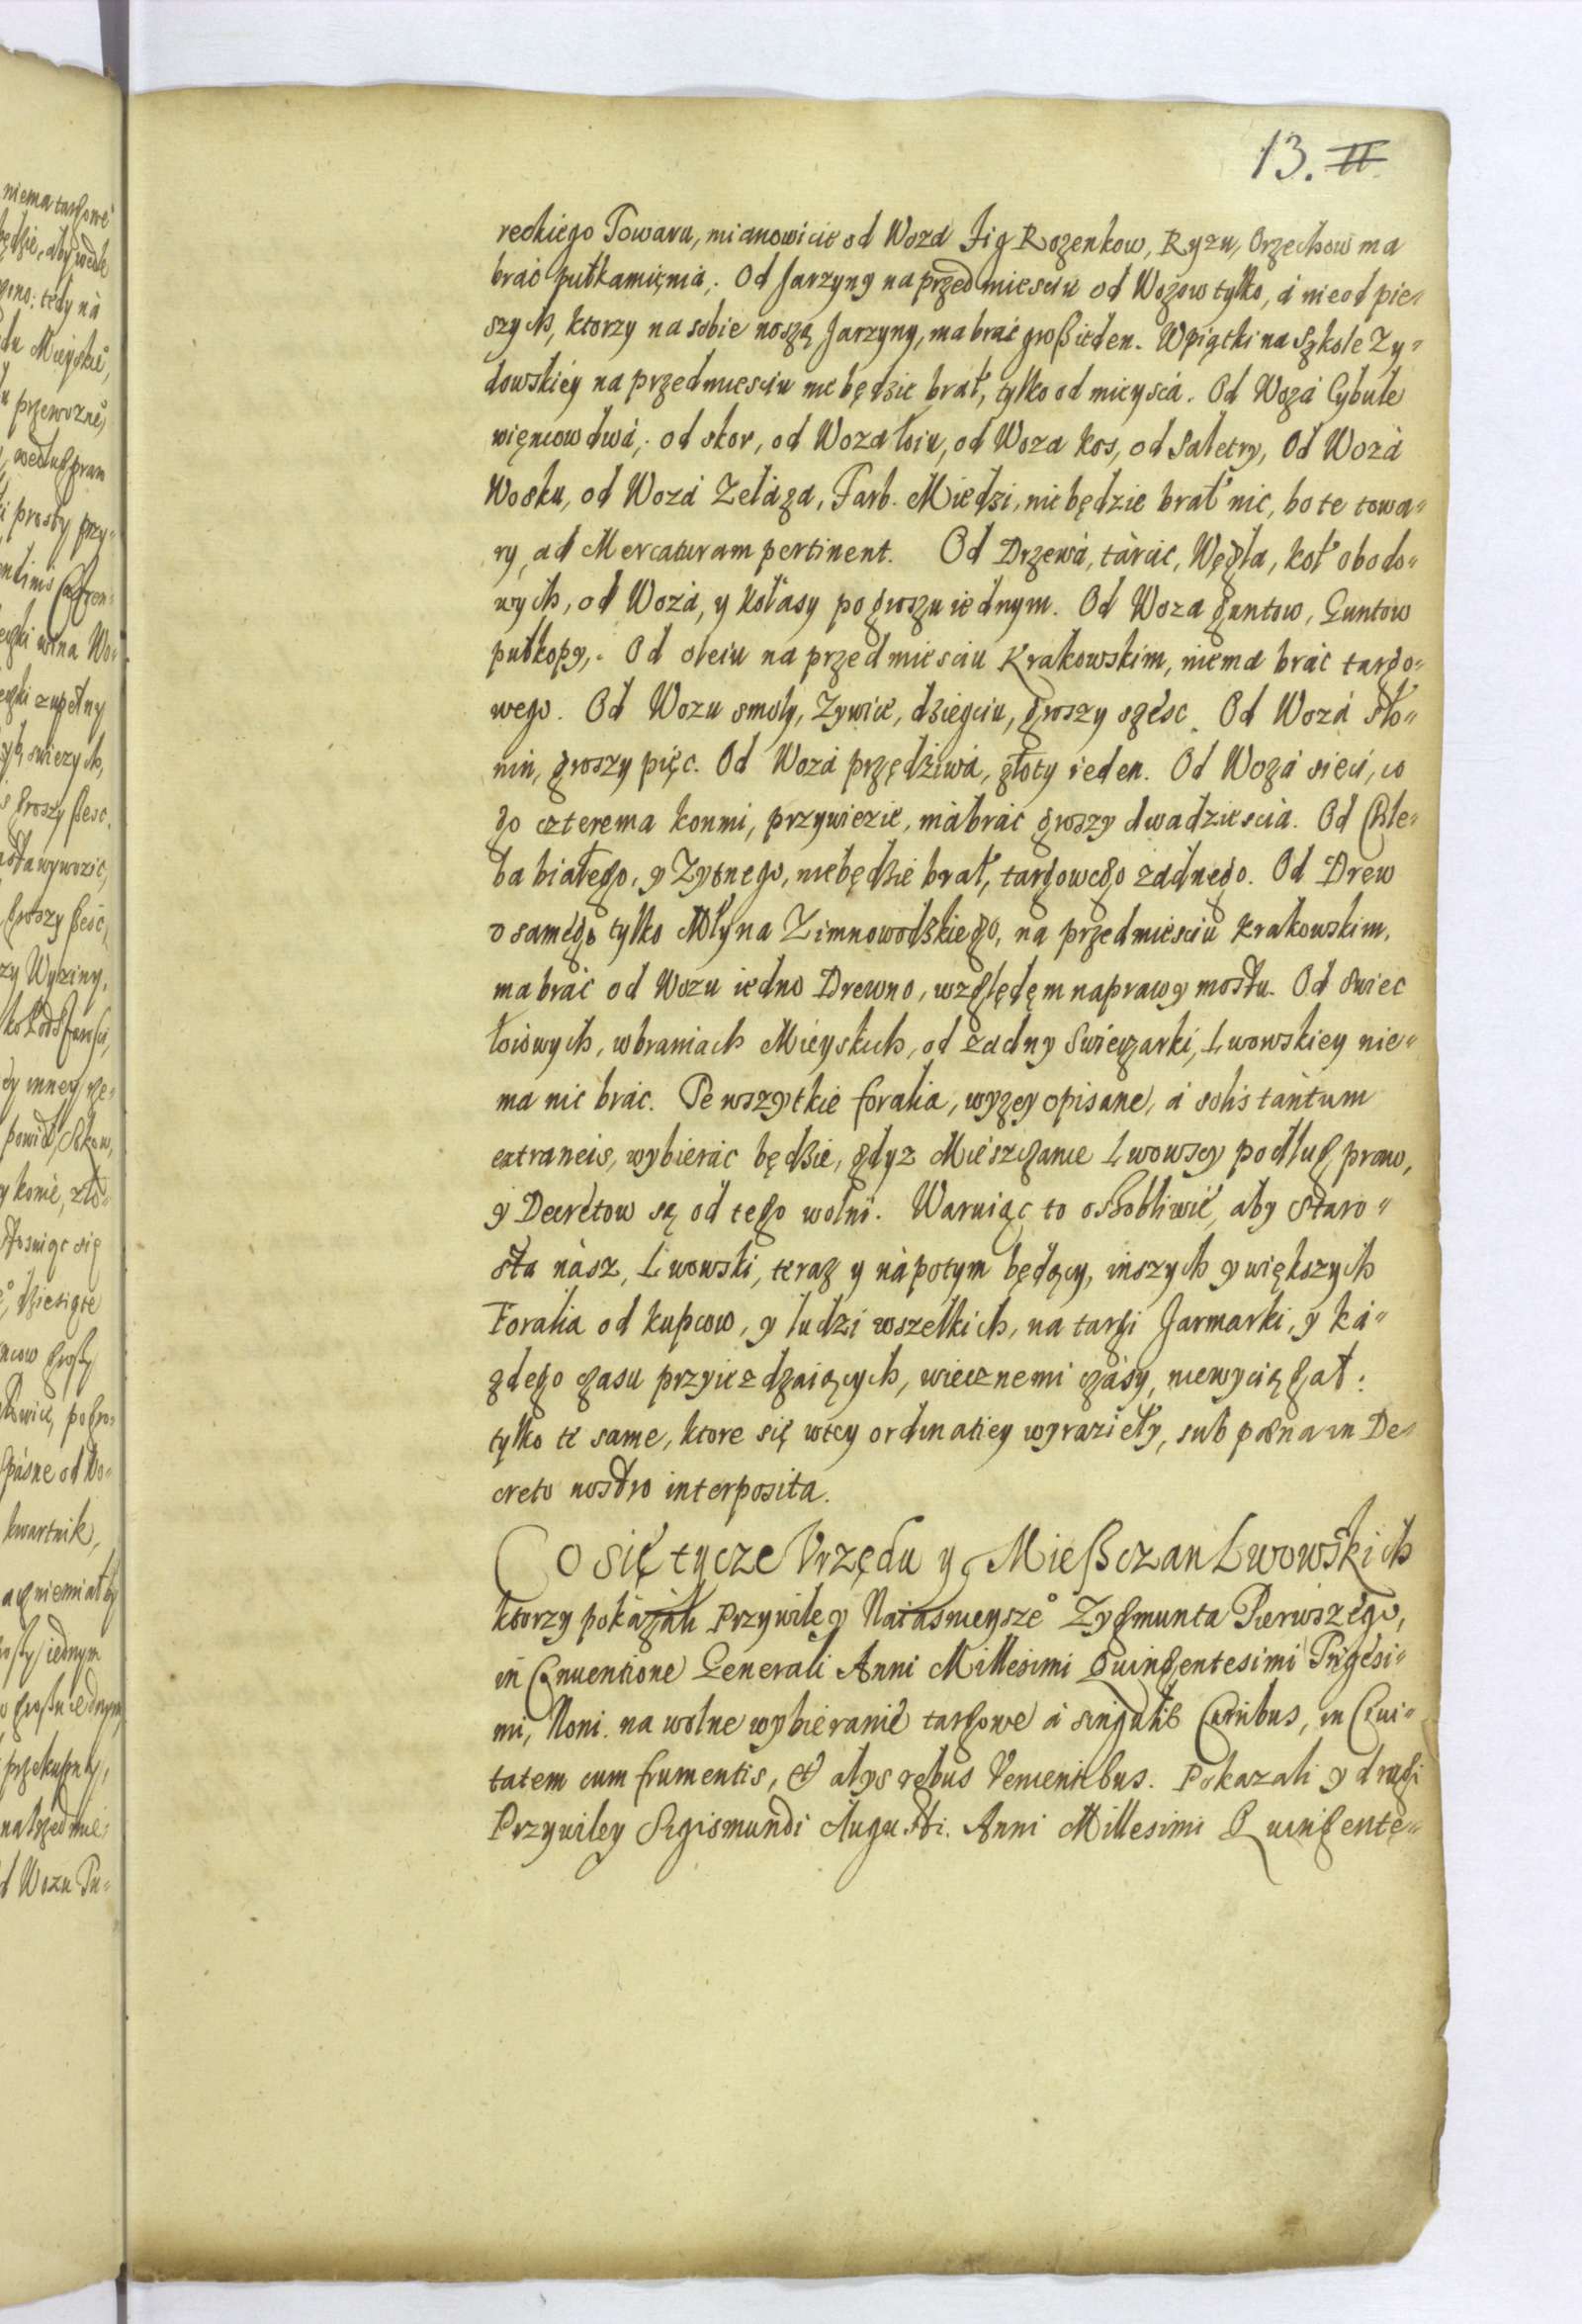 13. II.
reckiego Towaru, mianowicie od Woza Fig Rozenkow, Ryzu, Orzechow ma
brać pułkamięnia,. Od Jarzyny na przedmiesciu od Wozow tylko, á nieod pie=
szych, ktorzy na sobie noszą Jarzyny, ma brać groß ieden. Wpiątki na Szkole Zy=
dowskiey na przedmiesciu nie będzie brał, tylko od mieyscá. Od Wozá Cybule
więncow dwá,. od skor, od Woza łoiu, od Woza kos, od Saletry, Od Wozá
Wosku, od Wozá Zelaza, Farb. Miedzi, nie będzie brał nic, bo te towa=
ry, ad Mercaturam pertinent. Od Drzewá, tárcic, Węgla, koł obodo=
wych, od Wozá, y kolasy po groszu iednym. Od Woza guntow, Guntow
pułkopy,. Od oleiu na przedmiesciu Krakowskim, niema brać targo=
wego. Od Wozu smoly, Zywice, dziegciu, groszy szesc. Od Wozá sło=
nin, groszy pięc. Od Wozá przędziwá, złoty ieden. Od Wozá sieci, co
go czterema konmi, przywiezie, má brać groszy dwadziescia. Od Chle=
ba białego, y Zytnego, niebędzie brał, targowego żadnego. Od Drew
o samego tylko Młyna Zimnowodzkiego, na przedmiesciu Krakowskim,
ma brać od Wozu iedno Drewno, względęm naprawy mostu. Od swiec
łoiowych, wbramach Mieyskich, od żadny Swieczarki, Lwowskiey nie=
ma nic brac. Te wszytkie foralia, wyzey opisane, á solis tantum
extraneis, wybierac będzie, gdyz Mieszczanie Lwowscy podług praw,
y Decretow są od tego wolni. Waruiąc to oshobliwie, aby Staro=
sta nász, Lwowski, teraz y nápotym będący, inszych y większych
Foralia od kupcow, y ludzi wszelkich, na targi Jarmarki, y ká=
zdego czasu przyiezdzaiących, wiecznemi czásy, niewyciągał:
tylko te same, ktore się wtey ordinatiey wyrazieły, sub poena in De=
creto nostro interposita.
Co się tycze Vrzędu y Mießczan Lwowskich
ktorzy pokázali Przywiley Naiasnieysze° Zygmunta Pierwszego,
in Conuentione Generali Anni Millesimi Quingentesimi Trigesi=
mi, Noni. na wolne wybieranie targowe á singulis Curribus, in Ciui=
tatem cum frumentis, et alys rebus Venientibus. Pokazali y drugi
Przywiley Sigismundi Augusti. Anni Millesimi Quingente=